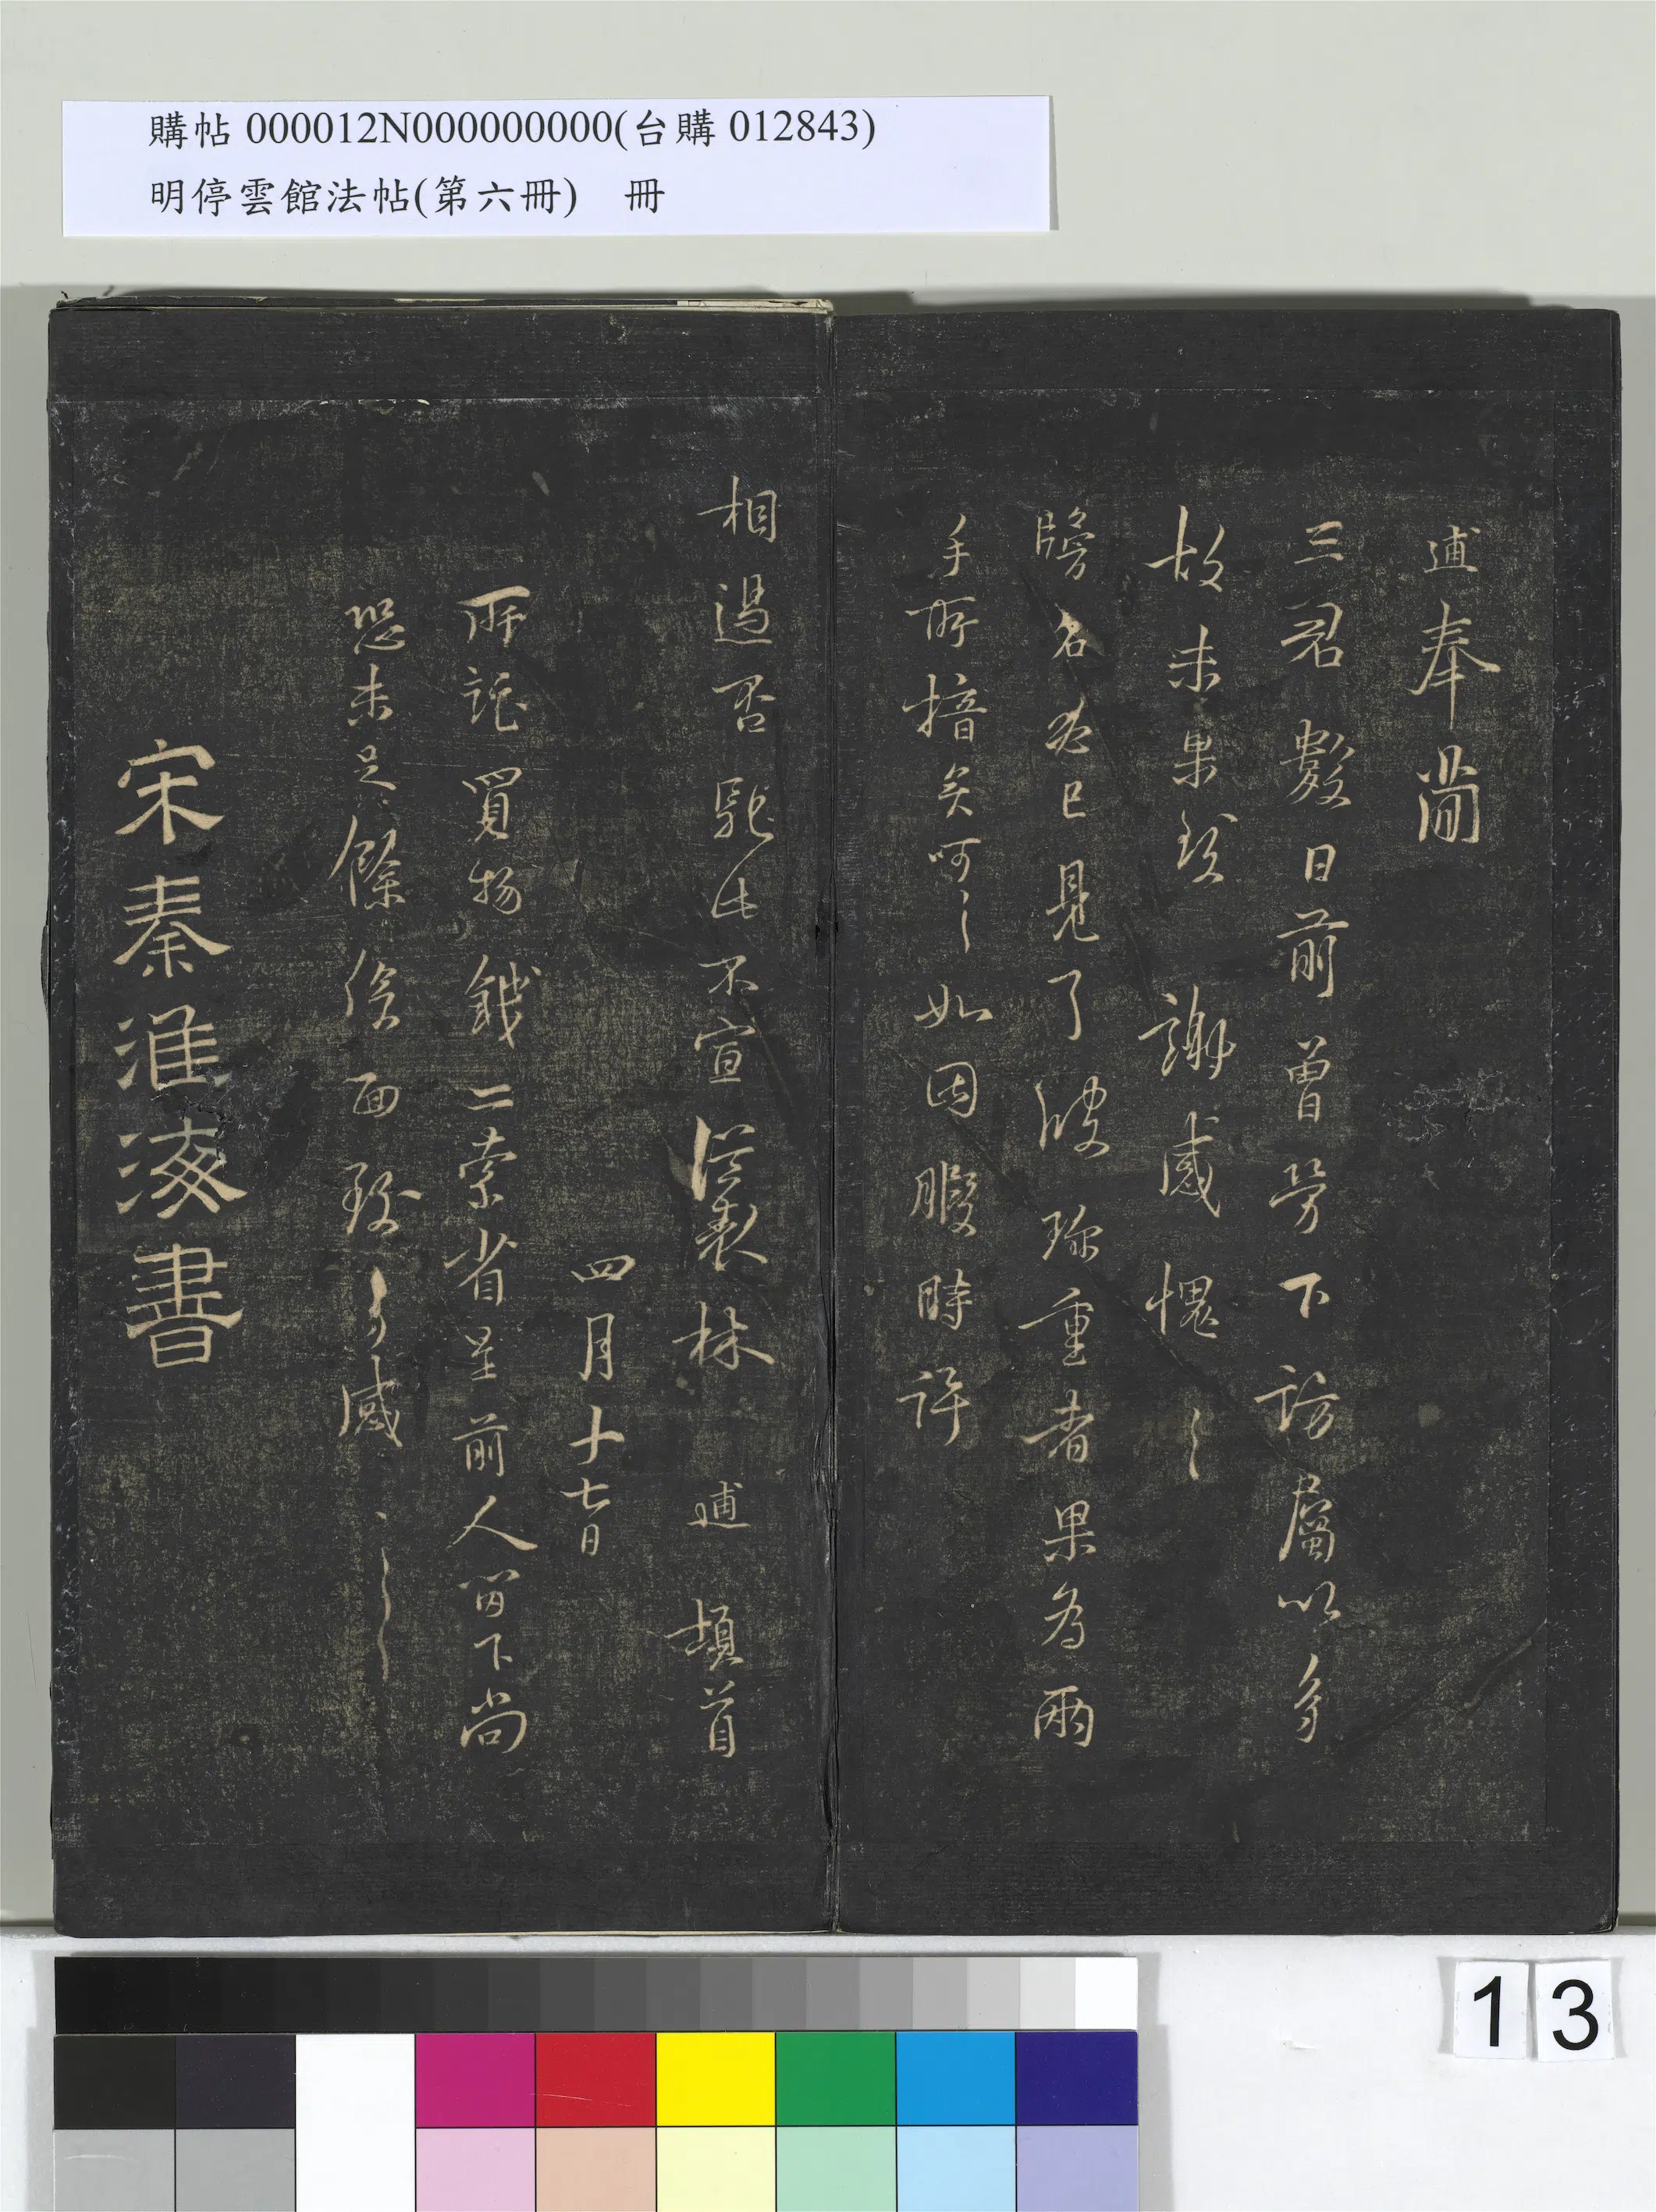 購帖 000012N000000000(台購 012843)
明停雲館法帖(第六冊)　冊
逋奉簡
三君數日前曾勞下訪屬以多
故未果致謝感愧〻
牓名必已見了彼珎重者果為兩
手所揞矣呵〻如因暇時許
相過否馳此不宣從表林逋頓首
四月十七日
所託買物錢二索省呈前人留下尚
恐未足餘俟面致多感〻〻
宋秦淮海書
13